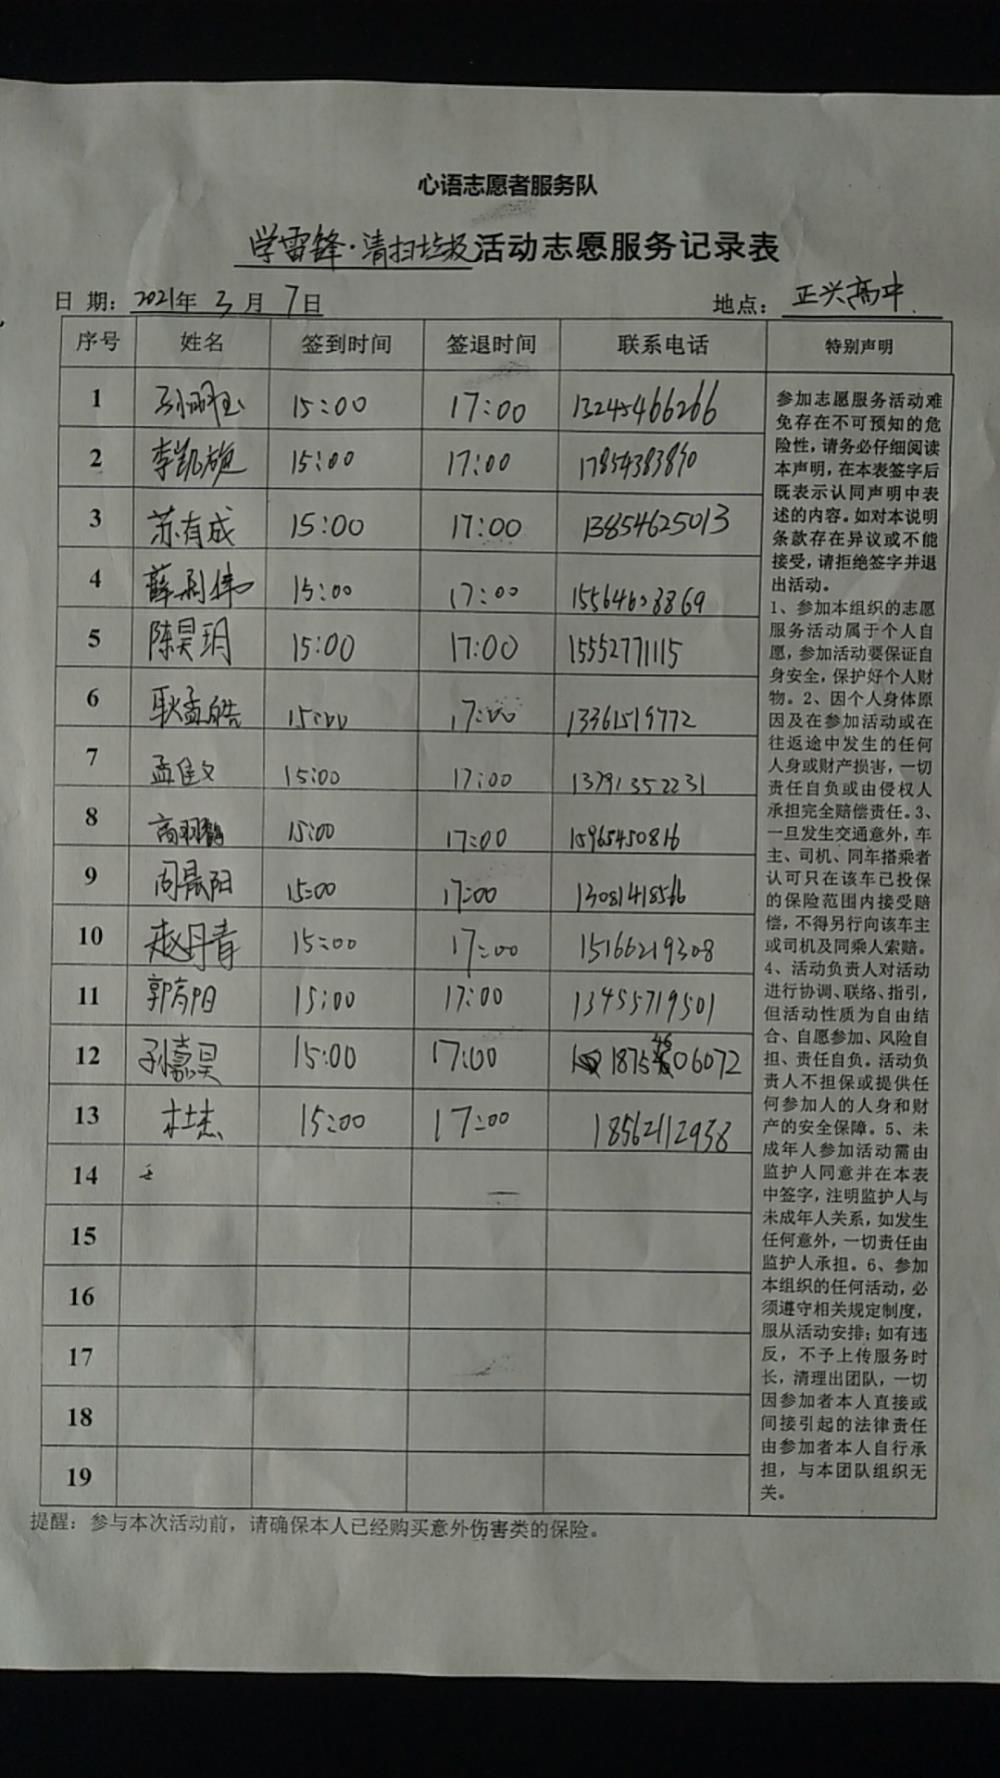 心语志愿者服务队
学雷锋·清扫垃圾活动志愿服务记录表
日 期：2021年 3 月 7 日 地点：正兴高中
序号 姓名 签到时间 签退时间 联系电话 特别声明
1 15:00 17:00 13245466266
2 李凯旋 15:00 17:00 17854383890
3 苏有成 15:00 17:00 13854625013
4 15:00 17:00
5 陈昊玥 15:00 17:00 15552771115
6 耿孟皓 15:00 17:00 13361519772
7 孟佳文 15:00 17:00 13791352231
8 15:00 17:00 15965450816
9 周晨阳 15:00 17:00 13081418566
10 赵丹青 15:00 17:00 15166219308
11 15:00 17:00 13455719501
12 孙嘉昊 15:00 17:00 18754606072
13 杜杰 15:00 17:00 18562112938
14
15
16
17
18
19
参加志愿服务活动难
免存在不可预知的危
险性，请务必仔细阅读
本声明，在本表签字后
既表示认同声明中表
述的内容。如对本说明
条款存在异议或不能
接受，请拒绝签字并退
出活动。
1、参加本组织的志愿
服务活动属于个人自
愿，参加活动要保证自
身安全，保护好个人财
物。2、因个人身体原
因及在参加活动或在
往返途中发生的任何
人身或财产损害，一切
责任自负或由侵权人
承担完全赔偿责任。3、
一旦发生交通意外，车
主、司机、同车搭乘者
认可只在该车已投保
的保险范围内接受赔
偿，不得另行向该车主
或司机及同乘人索赔。
4、活动负责人对活动
进行协调、联络、指引，
但活动性质为自由结
合、自愿参加、风险自
担、责任自负。活动负
责人不担保或提供任
何参加人的人身和财
产的安全保障。5、未
成年人参加活动需由
监护人同意并在本表
中签字，注明监护人与
未成年人关系，如发生
任何意外，一切责任由
监护人承担。6、参加
本组织的任何活动，必
须遵守相关规定制度，
服从活动安排；如有违
反，不予上传服务时
长，清理出团队，一切
因参加者本人直接或
间接引起的法律责任
由参加者本人自行承
担，与本团队组织无
关。
提醒：参与本次活动前，请确保本人已经购买意外伤害类的保险。